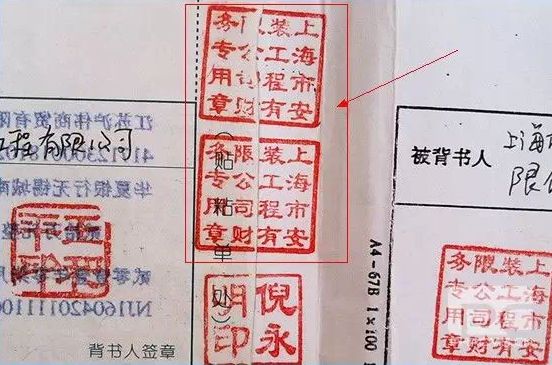 上海市安
装工程有
限公司财
务专用章
上海市安
装工程有
限公司财
务专用章
倪永
明印
(贴粘单处)
工程有限公司
江苏沪伟商贸有限
华夏银行无锡城南
背书人签章
A4-67B 1×100
被背书人
上海
限
上海市安
装工程有
限公司财
务专用章